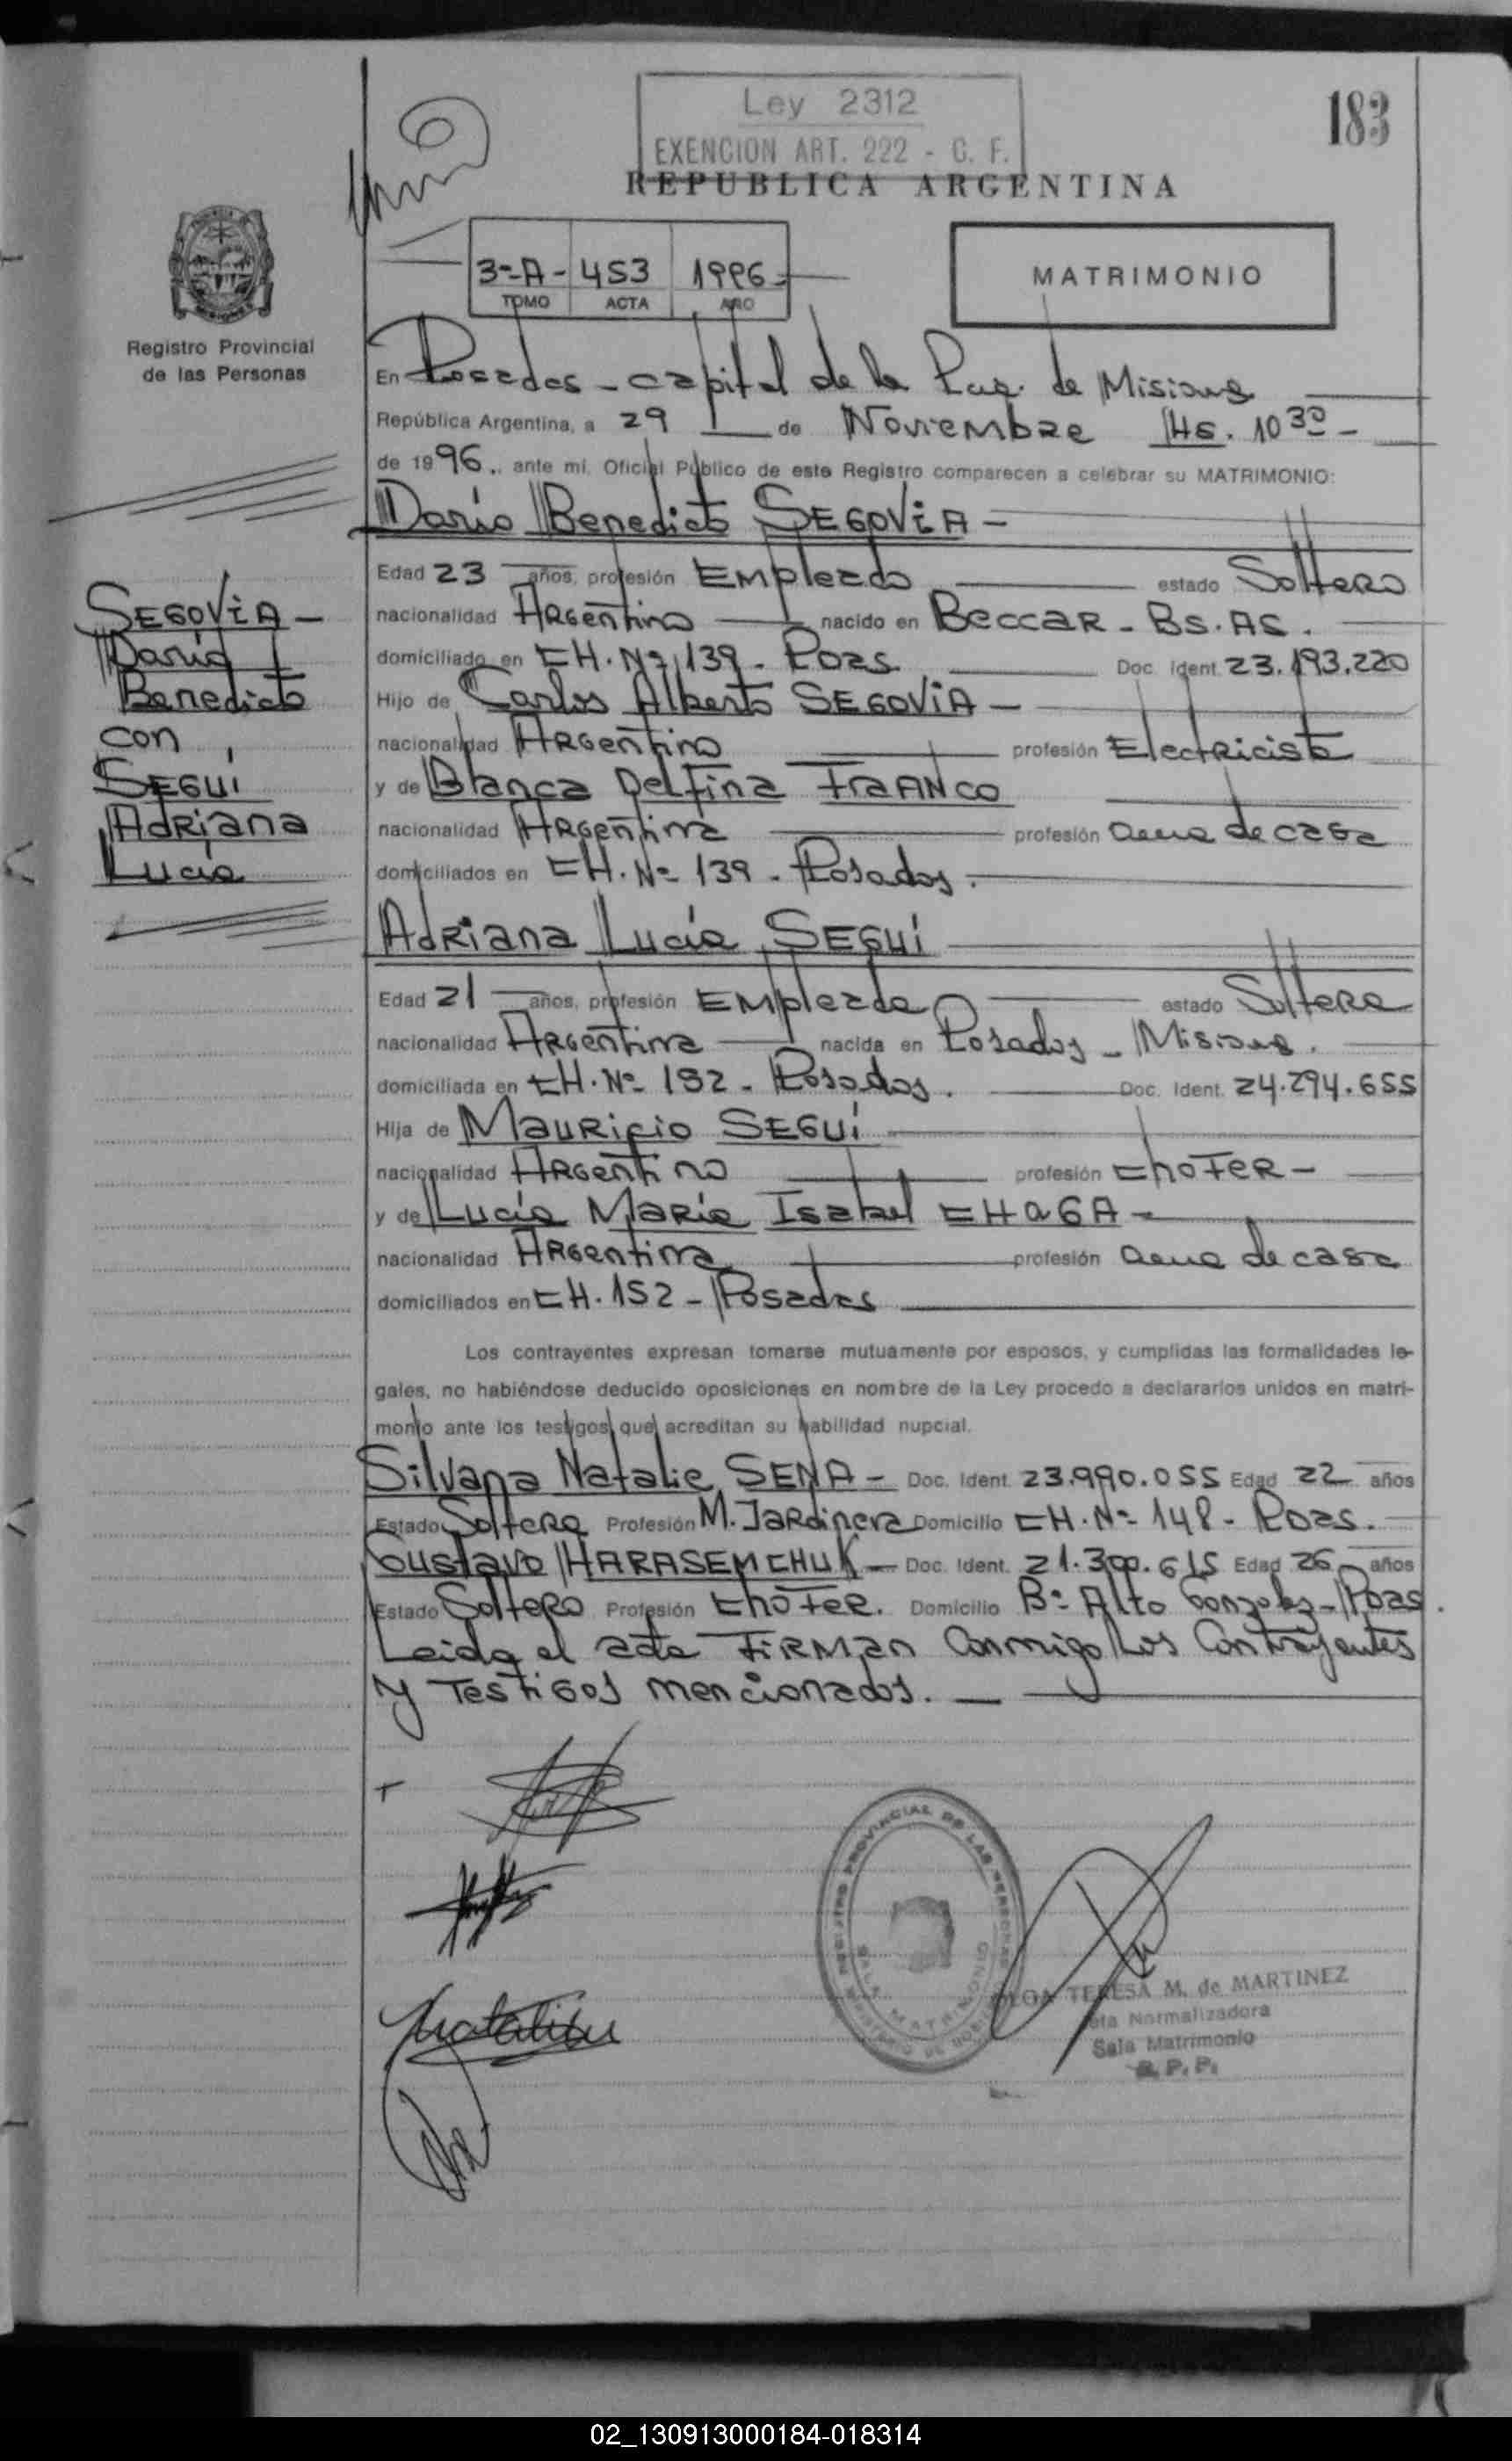 Ley 2312
EXENCION ART. 222 - C. F.
183
REPUBLICA ARGENTINA
3º-A- 453 1996-
TOMO ACTA AÑO
MATRIMONIO
Registro Provincial
de las Personas
En Posadas - capital de la Pcia. de Misiones
República Argentina, a 29 de Noviembre Hs. 10 30 -
de 1996., ante mí, Oficial Público de este Registro comparecen a celebrar su MATRIMONIO:
Darío Benedicto SEGOVIA -
Edad 23 años, profesión Empleado estado Soltero
nacionalidad Argentino nacido en Beccar - Bs. As.
domiciliado en CH. Nº 139 - Pdas Doc. Ident. 23.193.220
Hijo de Carlos Alberto SEGOVIA -
nacionalidad Argentino profesión Electricista
y de Blanca Delfina FRANCO
nacionalidad Argentina profesión ama de casa
domiciliados en CH. Nº 139 - Posadas.
SEGOVIA -
Darío
Benedicto
con
SEGUÍ
Adriana
Lucía
Adriana Lucía SEGUÍ
Edad 21 años, profesión Empleada estado Soltera
nacionalidad Argentina nacida en Posadas - Misiones.
domiciliada en CH. Nº 152 - Posadas. Doc. Ident. 24.294.655
Hija de Mauricio SEGUÍ
nacionalidad Argentino profesión Chofer -
y de Lucía María Isabel CHAGA -
nacionalidad Argentina profesión ama de casa
domiciliados en CH. 152 - Posadas
Los contrayentes expresan tomarse mutuamente por esposos, y cumplidas las formalidades le-
gales, no habiéndose deducido oposiciones en nombre de la Ley procedo a declararlos unidos en matri-
monio ante los testigos que acreditan su habilidad nupcial.
Silvana Natalie SENA - Doc. Ident. 23.990.055 Edad 22 años
Estado Soltera Profesión M. Jardinera Domicilio CH. Nº 148 - Pdas.
Gustavo HARASEMCHUK - Doc. Ident. 21.300.615 Edad 26 años
Estado Soltero Profesión Chofer. Domicilio Bº Alto Gonzalez - Pdas.
Leida el acta firman conmigo los contrayentes
y testigos mencionados. -
REGISTRO PROVINCIAL DE LAS PERSONAS
SALA MATRIMONIO
OLGA TERESA M. de MARTINEZ
Normalizadora
Sala Matrimonio
R. P. P.
02_130913000184-018314